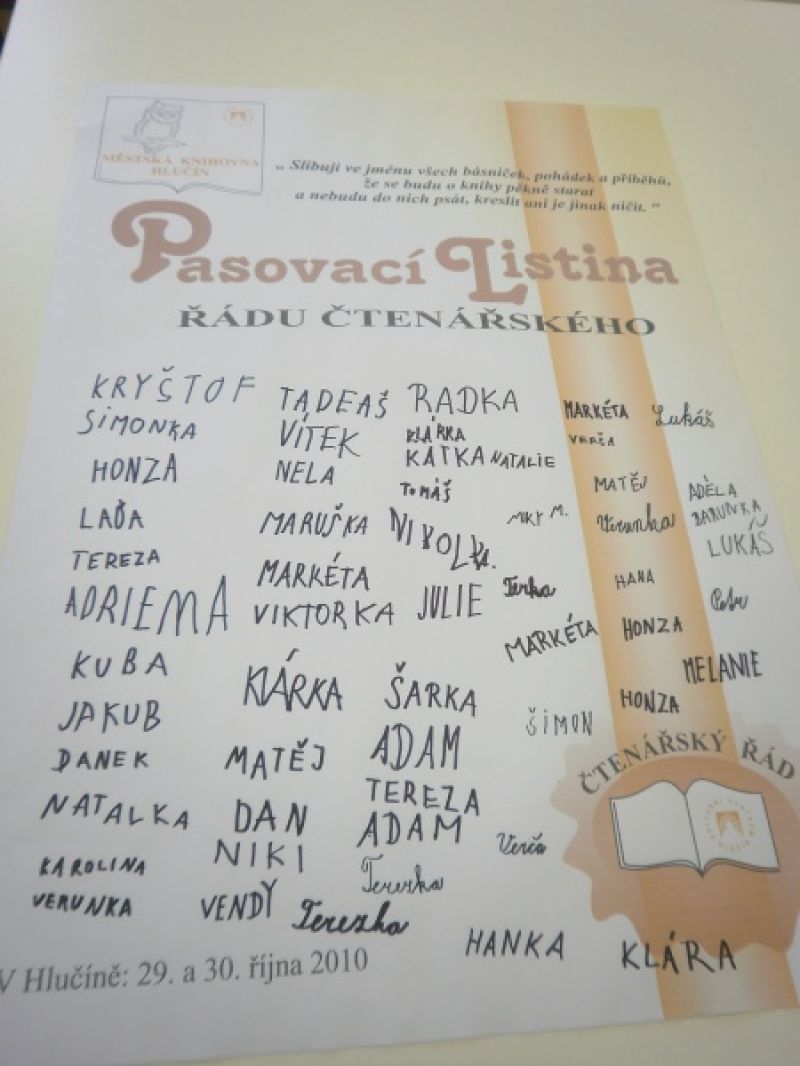 MĚSTSKÁ KNIHOVNA
HLUČÍN
„ Slibuji ve jménu všech básniček, pohádek a příběhů,
že se budu o knihy pěkně starat
a nebudu do nich psát, kreslit ani je jinak ničit. “
Pasovací Listina
ŘÁDU ČTENÁŘSKÉHO
KRYŠTOF TADEÁŠ RADKA MARKÉTA Lukáš
SIMONKA VÍTEK KLÁRKA VERČA
HONZA NELA KATKA NATALIE
TOMÁŠ MATĚJ ADÉLA
LAĎA MARUŠKA NIKOLKA. MIKY M. Verunka BARUNKA
LUKÁŠ
TEREZA MARKÉTA Terka HANA
ADRIEMA VIKTORKA JULIE Petr
MARKÉTA HONZA
KUBA KLÁRKA ŠARKA MELANIE
JAKUB ŠIMON HONZA
DANEK MATĚJ ADAM
ČTENÁŘSKÝ ŘÁD
NATALKA DAN TEREZA
ADAM Verča
KAROLINA NIKI Terezka
VERUNKA VENDY Terezka
HANKA KLÁRA
V Hlučíně: 29. a 30. října 2010